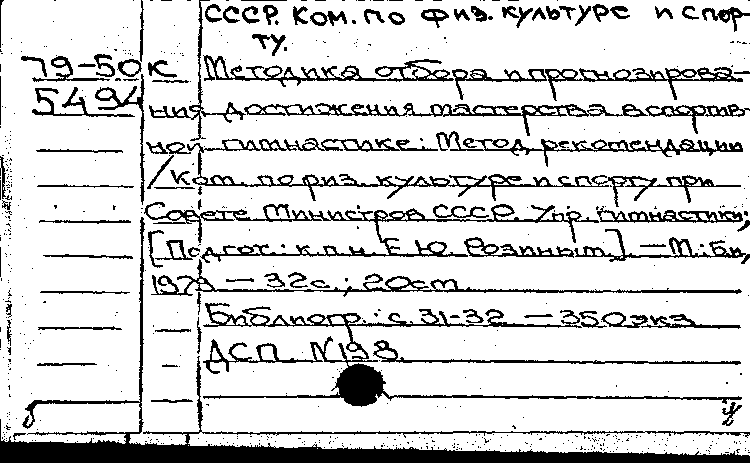 СССР. Ком. по физ. культуре и спор-
ту.
79-50к Методика отбора и прогнозирова-
5494 ния достижения мастерства в спортив-
ной гимнастике: Метод. рекомендации
/Ком. по физ. культуре и спорту при
Совете Министров СССР. Упр. гимнастики;
[Подгот.: к.п.н. Е.Ю. Розиным.] — М.: Б.и.,
1979 — 32с.; 20см.
Библиогр.: с. 31-32 — 350экз
ДСП. N198.